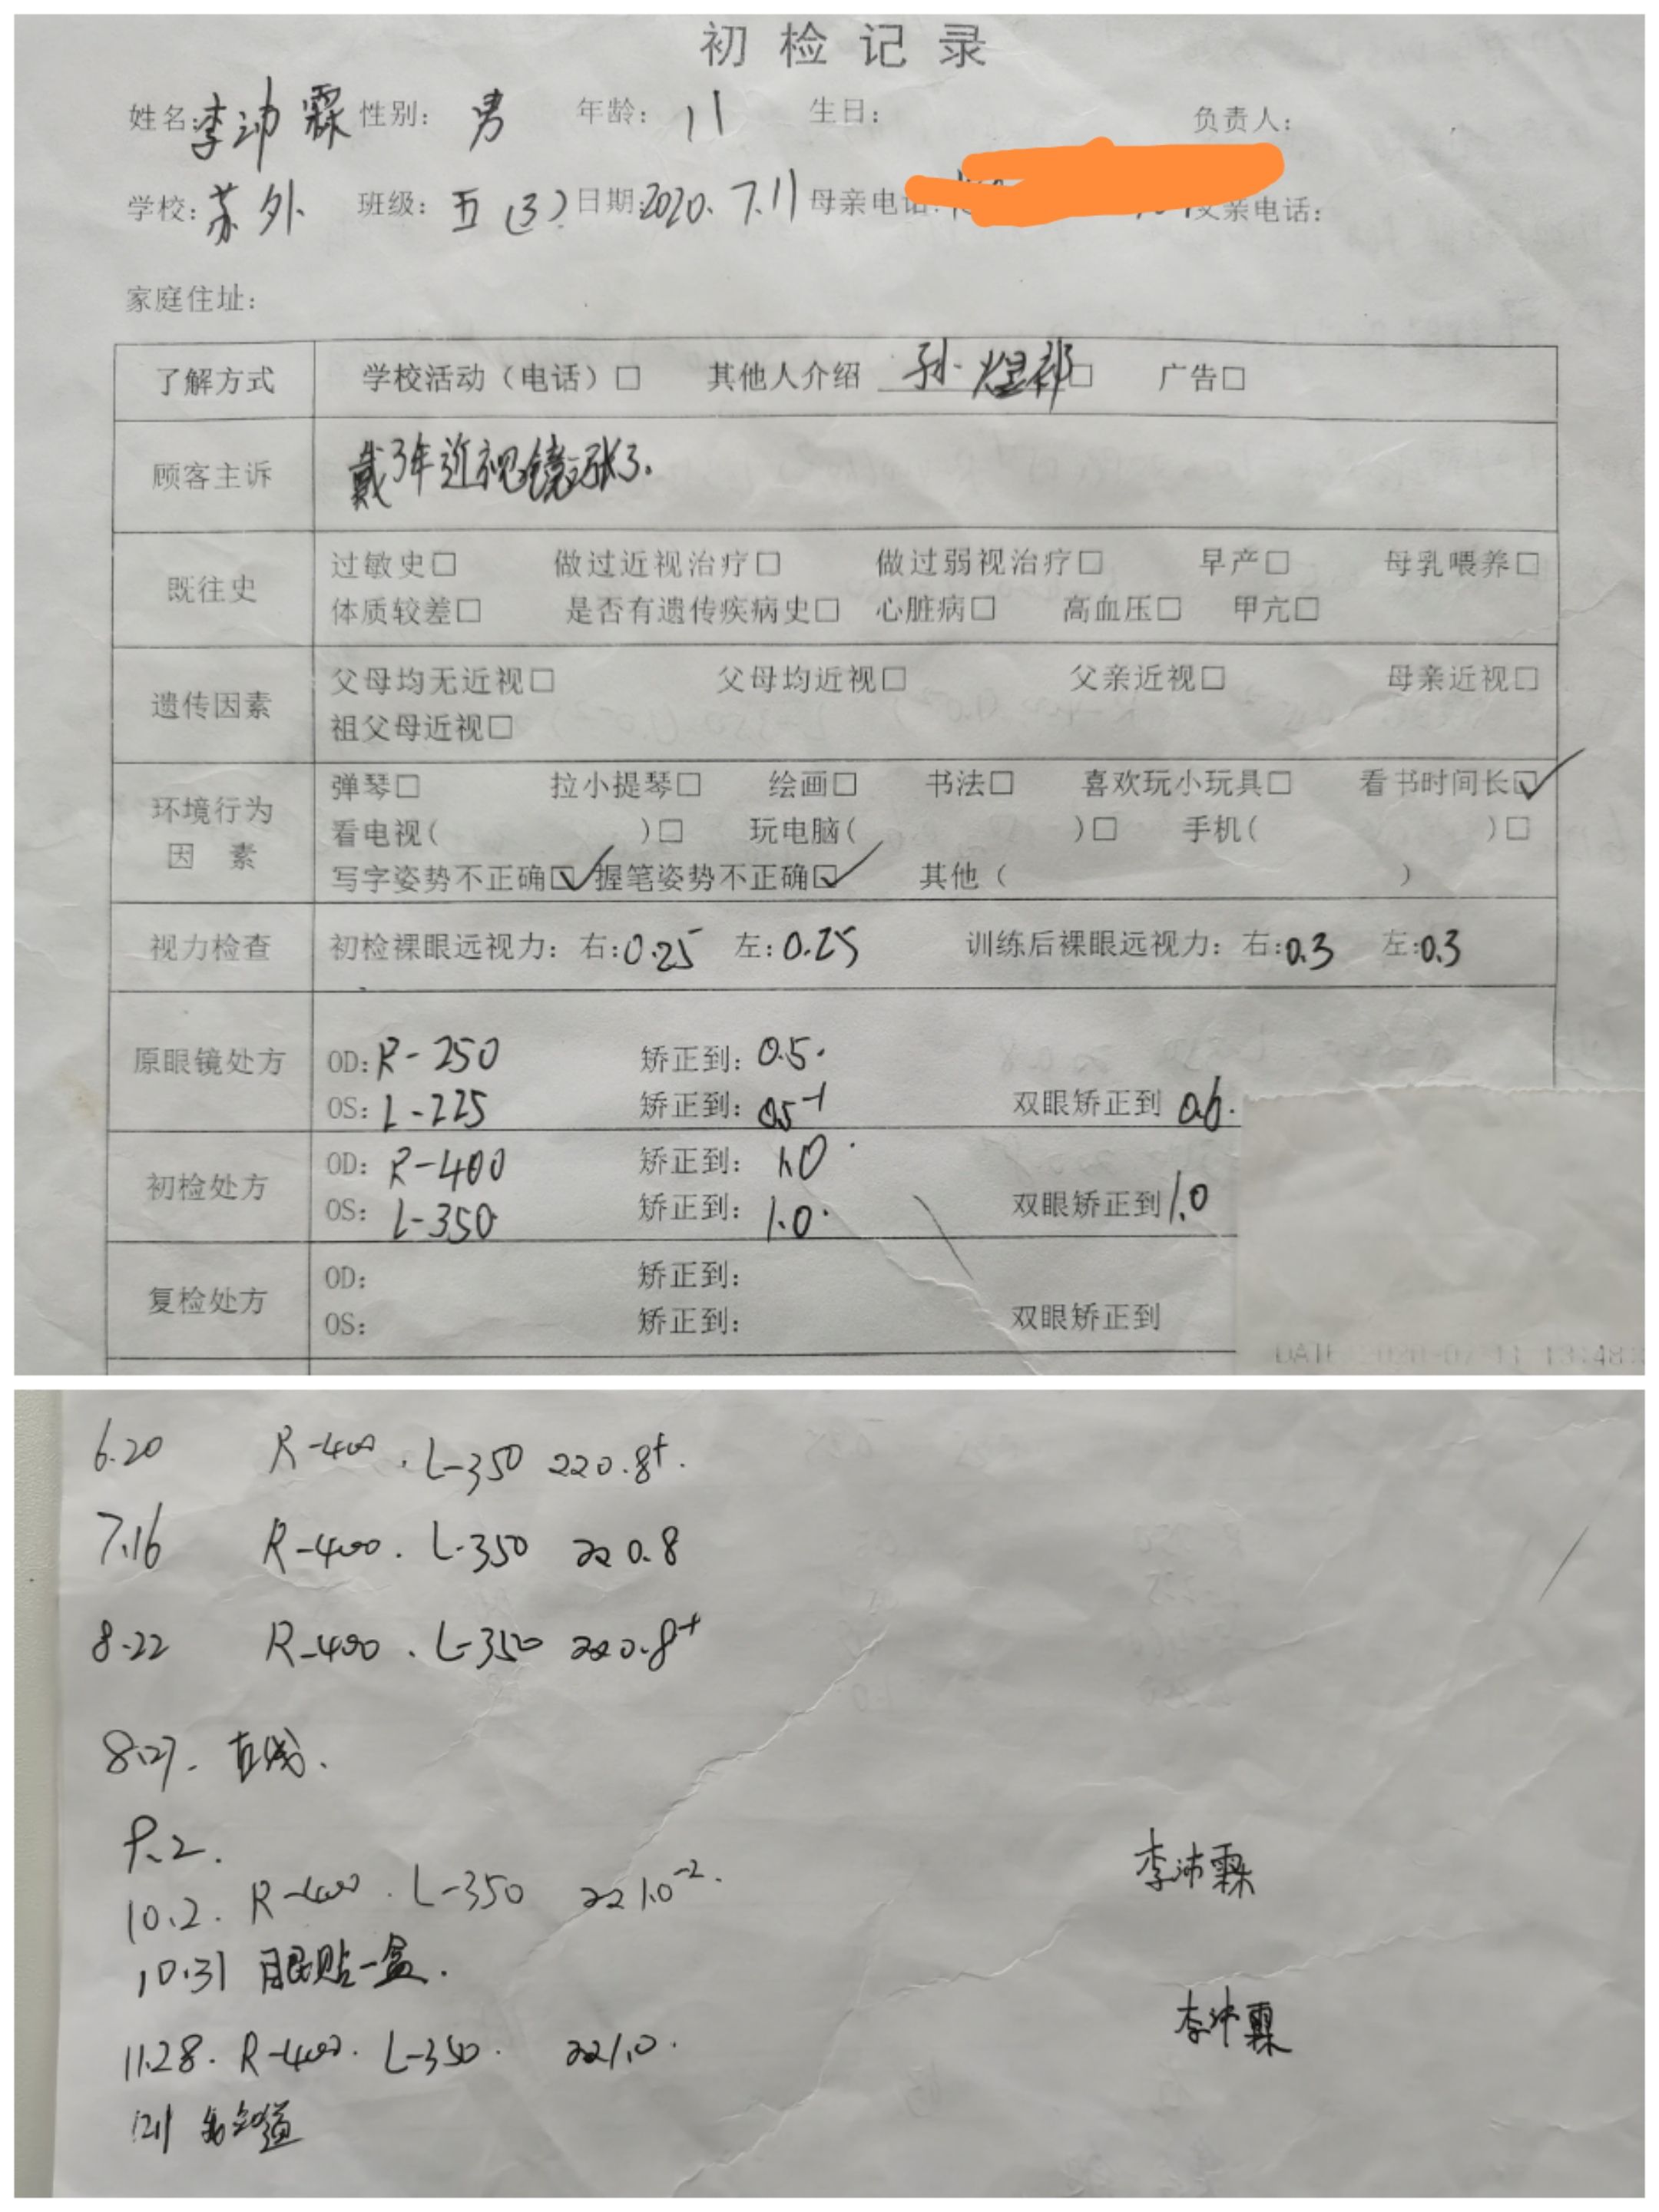 初检记录
姓名:李沛霖 性别: 男 年龄: 11 生日: 负责人:
学校: 苏外 班级: 五(3) 日期:2020.7.11 母亲电话: 父亲电话:
家庭住址:
了解方式 学校活动（电话）□ 其他人介绍 孙 □ 广告□
顾客主诉 戴3年近视镜涨了.
既往史 过敏史□ 做过近视治疗□ 做过弱视治疗□ 早产□ 母乳喂养□
体质较差□ 是否有遗传疾病史□ 心脏病□ 高血压□ 甲亢□
遗传因素 父母均无近视□ 父母均近视□ 父亲近视□ 母亲近视□
祖父母近视□
环境行为因素 弹琴□ 拉小提琴□ 绘画□ 书法□ 喜欢玩小玩具□ 看书时间长☑
看电视( )□ 玩电脑( )□ 手机( )□
写字姿势不正确☑ 握笔姿势不正确☑ 其他（ ）
视力检查 初检裸眼远视力：右:0.25 左:0.25 训练后裸眼远视力：右:0.3 左:0.3
原眼镜处方 OD: R-250 矫正到: 0.5.
OS: L-225 矫正到: 0.5-1 双眼矫正到 0.6.
初检处方 OD: R-400 矫正到: 1.0
OS: L-350 矫正到: 1.0. 双眼矫正到 1.0
复检处方 OD: 矫正到:
OS: 矫正到: 双眼矫正到
DATE 2020-07-11 13:48
6.20 R-400 . L-350 220.8+.
7.16 R-400 . L-350 220.8
8.22 R-400 . L-350 220.8+
8.27.
9.2.
李沛霖
10.2. R-400 . L-350 221.0-2.
10.31 眼贴一盒.
11.28. R-400. L-350. 221.0.
李沛霖